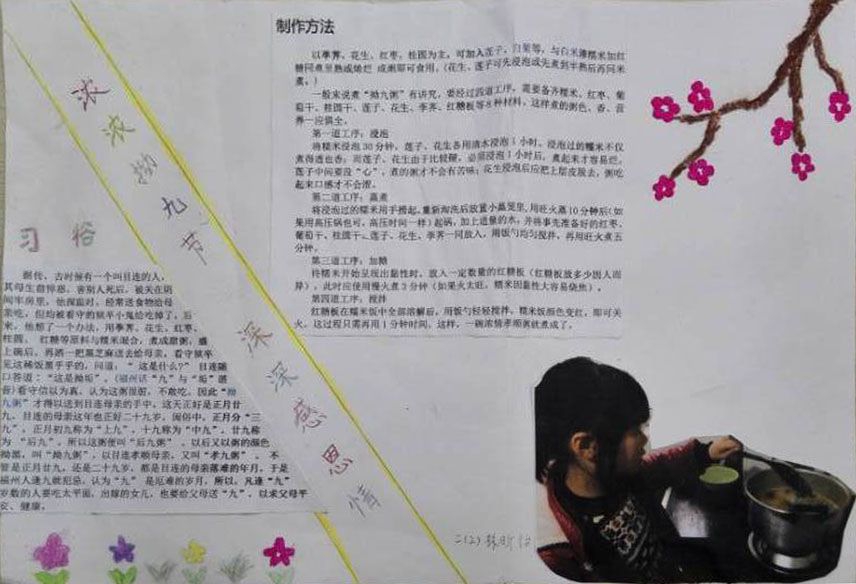 制作方法
以荸荠、花生、红枣、桂圆为主,可加入莲子、白果等,与白米薄糯米加红
糖同煮至熟或焖烂 成粥即可食用。(花生、莲子可先浸泡或先煮到半熟后再同米
煮。)
一般来说煮“拗九粥”有讲究,要经过四道工序,需要备齐糯米、红枣、葡
萄干、桂圆干、莲子、花生、荸荠、红糖板等8种材料,这样煮的粥色、香、营
养一应俱全。
第一道工序:浸泡
将糯米浸泡30分钟,莲子、花生各用清水浸泡1小时。浸泡过的糯米不仅
煮得透也香;而莲子、花生由于比较硬,必须浸泡1小时后,煮起来才容易烂。
莲子中间要没“心”,煮的粥才不会有苦味;花生浸泡后应把上层皮脱去,粥吃
起来口感才不会涩。
第二道工序:蒸煮
将浸泡过的糯米用手捞起,重新淘洗后放置小蒸笼里,用旺火蒸10分钟后(如
果用高压锅也可,高压时间一样)起锅,加上适量的水,并将事先准备好的红枣、
葡萄干、桂圆干、莲子、花生、荸荠一同放入,用饭勺均匀搅拌,再用旺火煮五
分钟。
第三道工序:加糖
待糯米开始呈现出黏性时,放入一定数量的红糖板(红糖板放多少因人而
异),此时应使用慢火煮3分钟(如果火太旺,糯米因黏性大容易烧焦)。
第四道工序:搅拌
红糖板在糯米饭中全部溶解后,用饭勺轻轻搅拌,糯米饭颜色变红,即可关
火。这过程只需再用1分钟时间。这样,一碗浓情孝顺粥就煮成了。
浓浓拗九节
深深感恩情
习俗
据传,古时候有一个叫目连的人,
其母生前悭恶,害别人死后,被关在阴
间牢房里,他探监时,经常送食物给母
亲吃,但均被看守的狱卒小鬼给吃掉了。后
来,他想了一个办法,用荸荠、花生、红枣、
桂圆、红糖等原料与糯米混合,煮成甜粥,盛
上碗后,再洒一把黑芝麻送去给母亲,看守狱卒
见这稀饭黑乎乎的,问道:“ 这是什么?”目连随
口答道:“这是拗垢”。(福州话“九”与“垢”谐
音)看守信以为真,认为这粥很脏,不敢吃。因此“拗
九粥”才得以送到目连母亲的手中。这天正好是正月廿
九,目连的母亲这年也正好二十九岁。闽俗中,正月分“三
九”,正月初九称为“上九”,十九称为“中九”,廿九称
为 “后九”。所以这粥便叫“后九粥”,以后又以粥的颜色
拗垢,叫“拗九粥”,以目连孝顺母亲,又叫“孝九粥”。不
管是正月廿九,还是二十九岁,都是目连的母亲落难的年月,于是
福州人逢九就犯忌,认为“九” 是厄难的岁月,所以,凡逢“九”
岁数的人要吃太平面,出嫁的女儿,也要给父母送“九”,以求父母平
安、健康。
二(2)